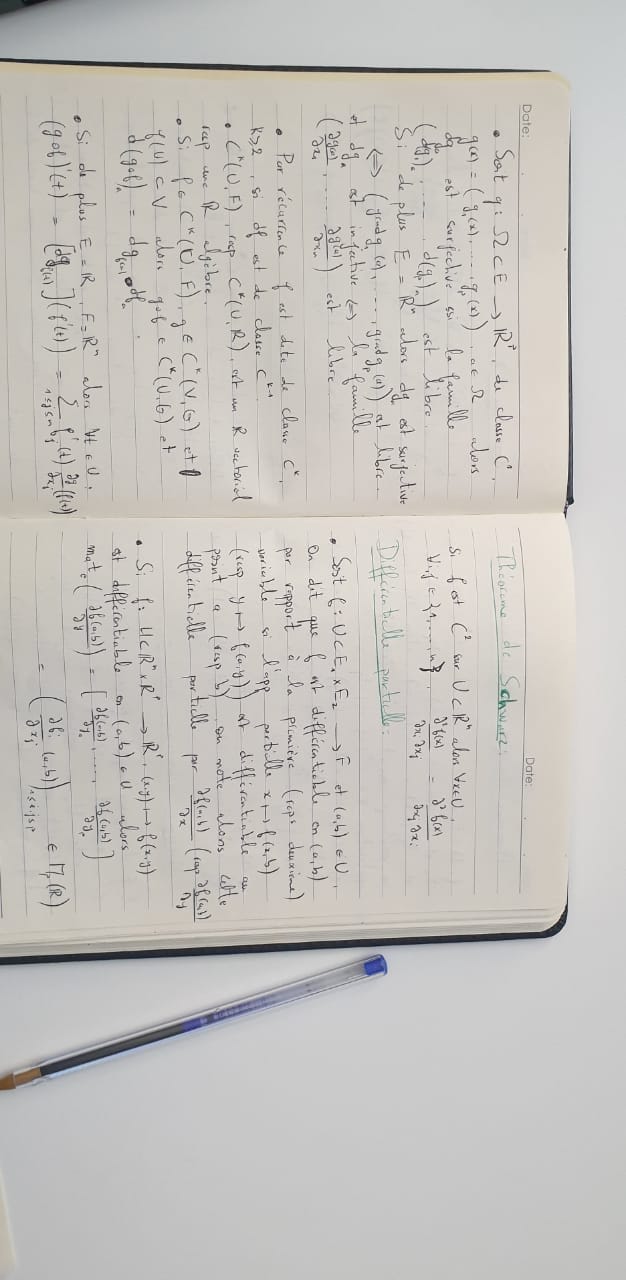 Date:
• Soit g: Ω ⊂ E → ℝᵖ, de classe C¹,
g(x) = (g₁(x), ..., gₚ(x)), a ∈ Ω alors
dgₐ est surjective ssi la famille
((dg₁)ₐ, ..., d(gₚ)ₐ) est libre.
Si de plus E = ℝⁿ alors dgₐ est surjective
⟺ (grad g₁(a), ..., grad gₚ(a)) est libre.
et dgₐ est injective ⟺ la famille
(∂g(a)/∂x₁, ..., ∂g(a)/∂xₙ) est libre.
• Par récurrence f est dite de classe Cᵏ,
k≥2, si df est de classe Cᵏ⁻¹
• Cᵏ(U,F), rap Cᵏ(U,ℝ), est un ℝ vectoriel
rap une ℝ algèbre.
• Si f ∈ Cᵏ(U,F), g ∈ Cᵏ(V,G) et
f(U) ⊂ V alors gof ∈ Cᵏ(U,G) et
d(gof)ₐ = dg_f(a) ∘ dfₐ
• Si de plus E = ℝ, F = ℝⁿ alors ∀t ∈ U,
(gof)'(t) = [dg_f(t)](f'(t)) = Σ_{1≤j≤n} f'ⱼ(t) ∂g/∂xⱼ(f(t))
Date:
Théorème de Schwarz:
Si f est C² sur U ⊂ ℝⁿ alors ∀x∈U,
∀i,j ∈ {1,...,n}, ∂²f(x)/∂xᵢ∂xⱼ = ∂²f(x)/∂xⱼ∂xᵢ
Différentielle partielle:
• Soit f: U ⊂ E₁×E₂ → F et (a,b) ∈ U,
On dit que f est différentiable en (a,b)
par rapport à la première (reps deuxième)
variable si l'app partielle x ↦ f(x,b)
(resp y ↦ f(a,y)) est différentiable au
point a (resp b), on note alors cette
différentielle partielle par ∂f(a,b)/∂x (rap ∂f(a,b)/∂y)
• Si f: U⊂ℝⁿ×ℝᵖ → ℝᵖ, (x,y) ↦ f(x,y)
est différentiable en (a,b) ∈ U alors
matc(∂f(a,b)/∂y) = [∂f(a,b)/∂y₁, ..., ∂f(a,b)/∂yₚ]
= (∂fᵢ/∂xⱼ (a,b))_{1≤i,j≤p} ∈ Mₚ(ℝ)